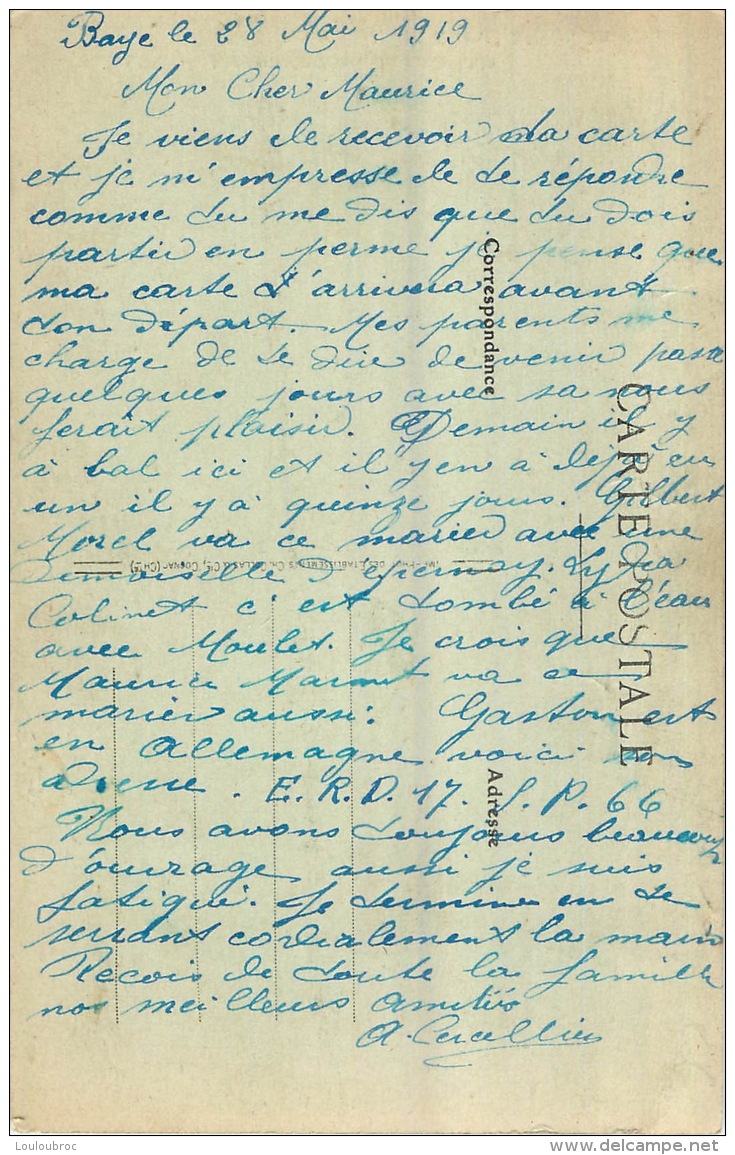 Baye le 28 Mai 1919
Mon Cher Maurice
Je viens de recevoir ta carte
et je m'empresse de te répondre
comme tu me dis que tu dois
partir en perme je pense que
ma carte t'arrivera avant
ton départ. Mes parents me
charge de te dire de venir passé
quelques jours avec sa nous
ferait plaisir. Demain il y
à bal ici et il y en à dejà eu
un il y à quinze jours. Gilbert
Morel va ce marier avec une
Demoiselle d'Epernay. Lydia
Colinet c'est tombé à l'eau
avec Moulet. Je crois que
Maurice va ce
marier aussi. Gaston est
en Allemagne voici son
adresse. E. R. D. 17. S. P. 66
Nous avons toujours beaucoup
d'ouvrage aussi je suis
fatigué. Je termine en te
serrant cordialement la main
Recois de toute la famille
nos meilleurs amitiés
A. Cercellier
Correspondance
CARTE POSTALE
Adresse
IMP. PHOT. DES ETABLISSEMENTS CH. COLLAS & Cie, COGNAC (CHte)
Louloubroc
www.delcampe.net